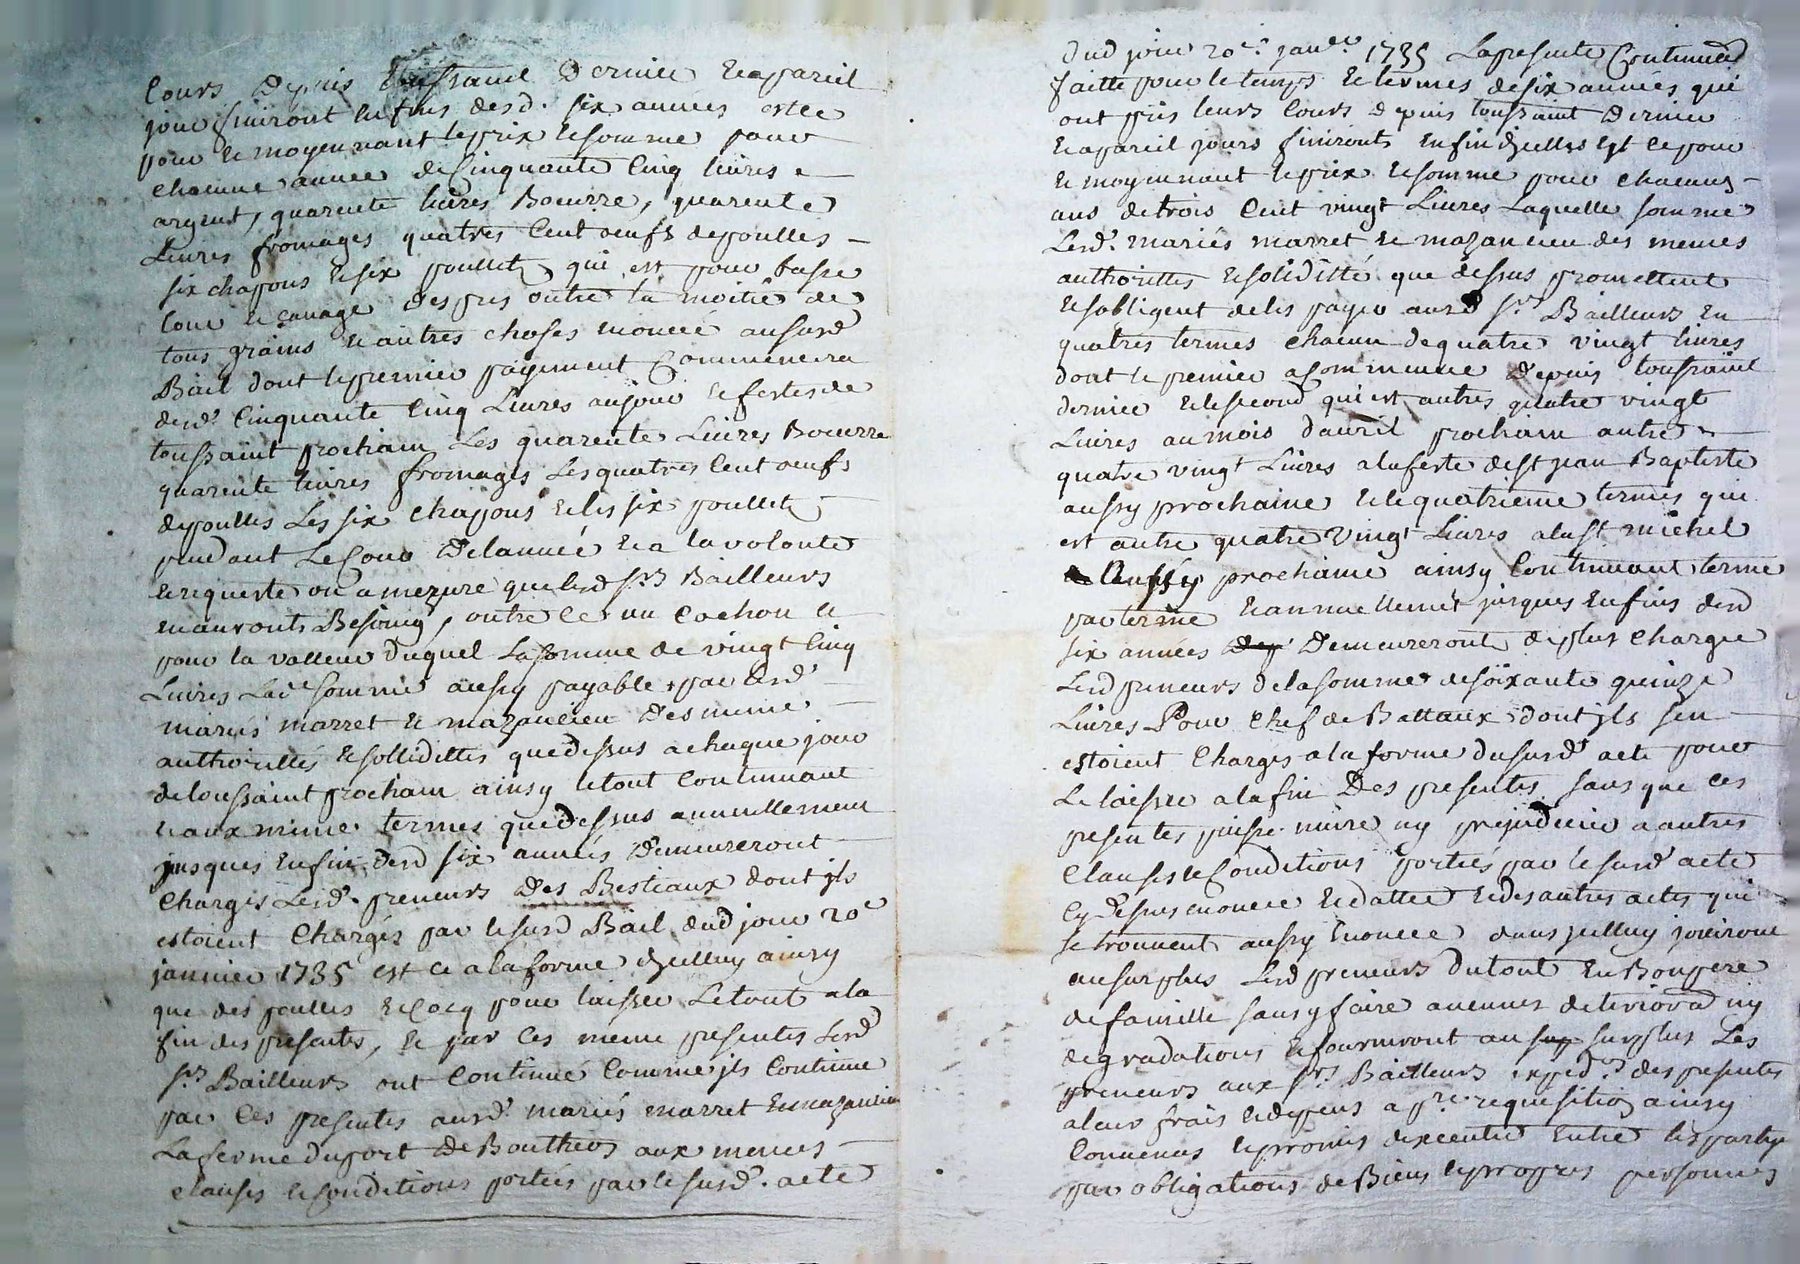 Cours Depuis toussaint Dernier Et apareil
jour finiront En fins desd. six années est ce
pour Et moyennant le prix Et somme pour
chacune année de Cinquante Cinq livres
argent, quarente livres Beurre, quarente
Livres fromages quatres Cent oeufs de poulles
six chapons et six poullets qui est pour basse
Cour
tous grains et autres choses enoncé au surd
Bail dont le premier payement Commencera
desd. Cinquante Cinq Livres aujour et festes de
toussaint prochain Les quarente Livres Beurre
quarente livres fromages Les quatres Cent oeufs
de poulles Les six chapons et les six poullets
pendant Le Cour De lannée Et a la volonté
Et requeste ou a mezure que lesd srs Bailleurs
en auronts Besoing, outre ce un Cochon et
pour la valleur duquel La somme de vingt Cinq
Livres Lade somme aussy payable par lesd
mariés marret et mazancieu Des meme
authorittés Et sollidittés que dessus a chaque jour
de toussaint prochain ainsy le tout Continuant
Et aux meme termes que dessus annuellement
jusques En fin desd six années Demeureront
Chargés Lesd. preneurs Des Bestiaux dont jls
estoient Chargés par le surd Bail dud jour 20e
janvier 1735 est ce a la forme djcelluy ainsy
que des poulles et Cocq pour laisser Le tout a la
fin des presentes, Et par Ces meme presentes Lesd
srs Bailleurs ont Continué Comme jls Continue
par Ces presentes auxd. mariés marret Et mazancieu
La ferme du port De Boutheon aux memes
clauses Et Conditions portées par le surd. acte
Dud jour 20e. janer 1735 La presente Continued
faitte pour le temps Et termes de six années qui
ont pris leurs Cours depuis toussaint Dernier
Et apareil jours finironts En fin djcelles Est ce pour
Et moyennant le prix Et somme pour chacuns
ans de trois Cent vingt Livres Laquelle somme
Lesd. mariés marret et mazancieu des memes
authorittés Et soliditté que dessus promettent
Et sobligent de les payer auxd srs Bailleurs En
quatres termes chacun de quatre vingt livres
dont le premier a Commencué Depuis toussaint
dernier Et le second qui est autres quatre vingt
Livres au mois d'avril prochain autre
quatre vingt Livres a la feste de st jean Baptiste
aussy prochaine Et le quatrieme termes qui
est autre quatre Vingt Livres a la st michel
aussy prochaine ainsy Continuant terme
par terme Et annuellement jusques En fins desd
six années Demeureront de plus Charge
Lesd preneurs de la somme de soixante quinze
Livres Pour Chef de Battaux dont jls sen
estoient Charges a la forme du surd acte pour
Le laisser a la fin Des presentes sans que Ces
presentes puisse nuire ny prejudicier a autres
Clauses Et Conditions portées par le surd acte
Cy Dessus enoncé Et datte Et des autres actes qui
se trouvent aussy Enonce dans jcelluy jouiront
au surplus Lesd preneurs du tout En Bon pere
de famille sans y faire aucunes deteriora ny
degradations Et fourniront au surplus Les
preneurs aux srs Bailleurs exped.on des presentes
a leur frais Et depens a pre. requisition ainsy
Convenus Et promis dexecuter Entre les partys
par obligations de Biens Et propres personnes